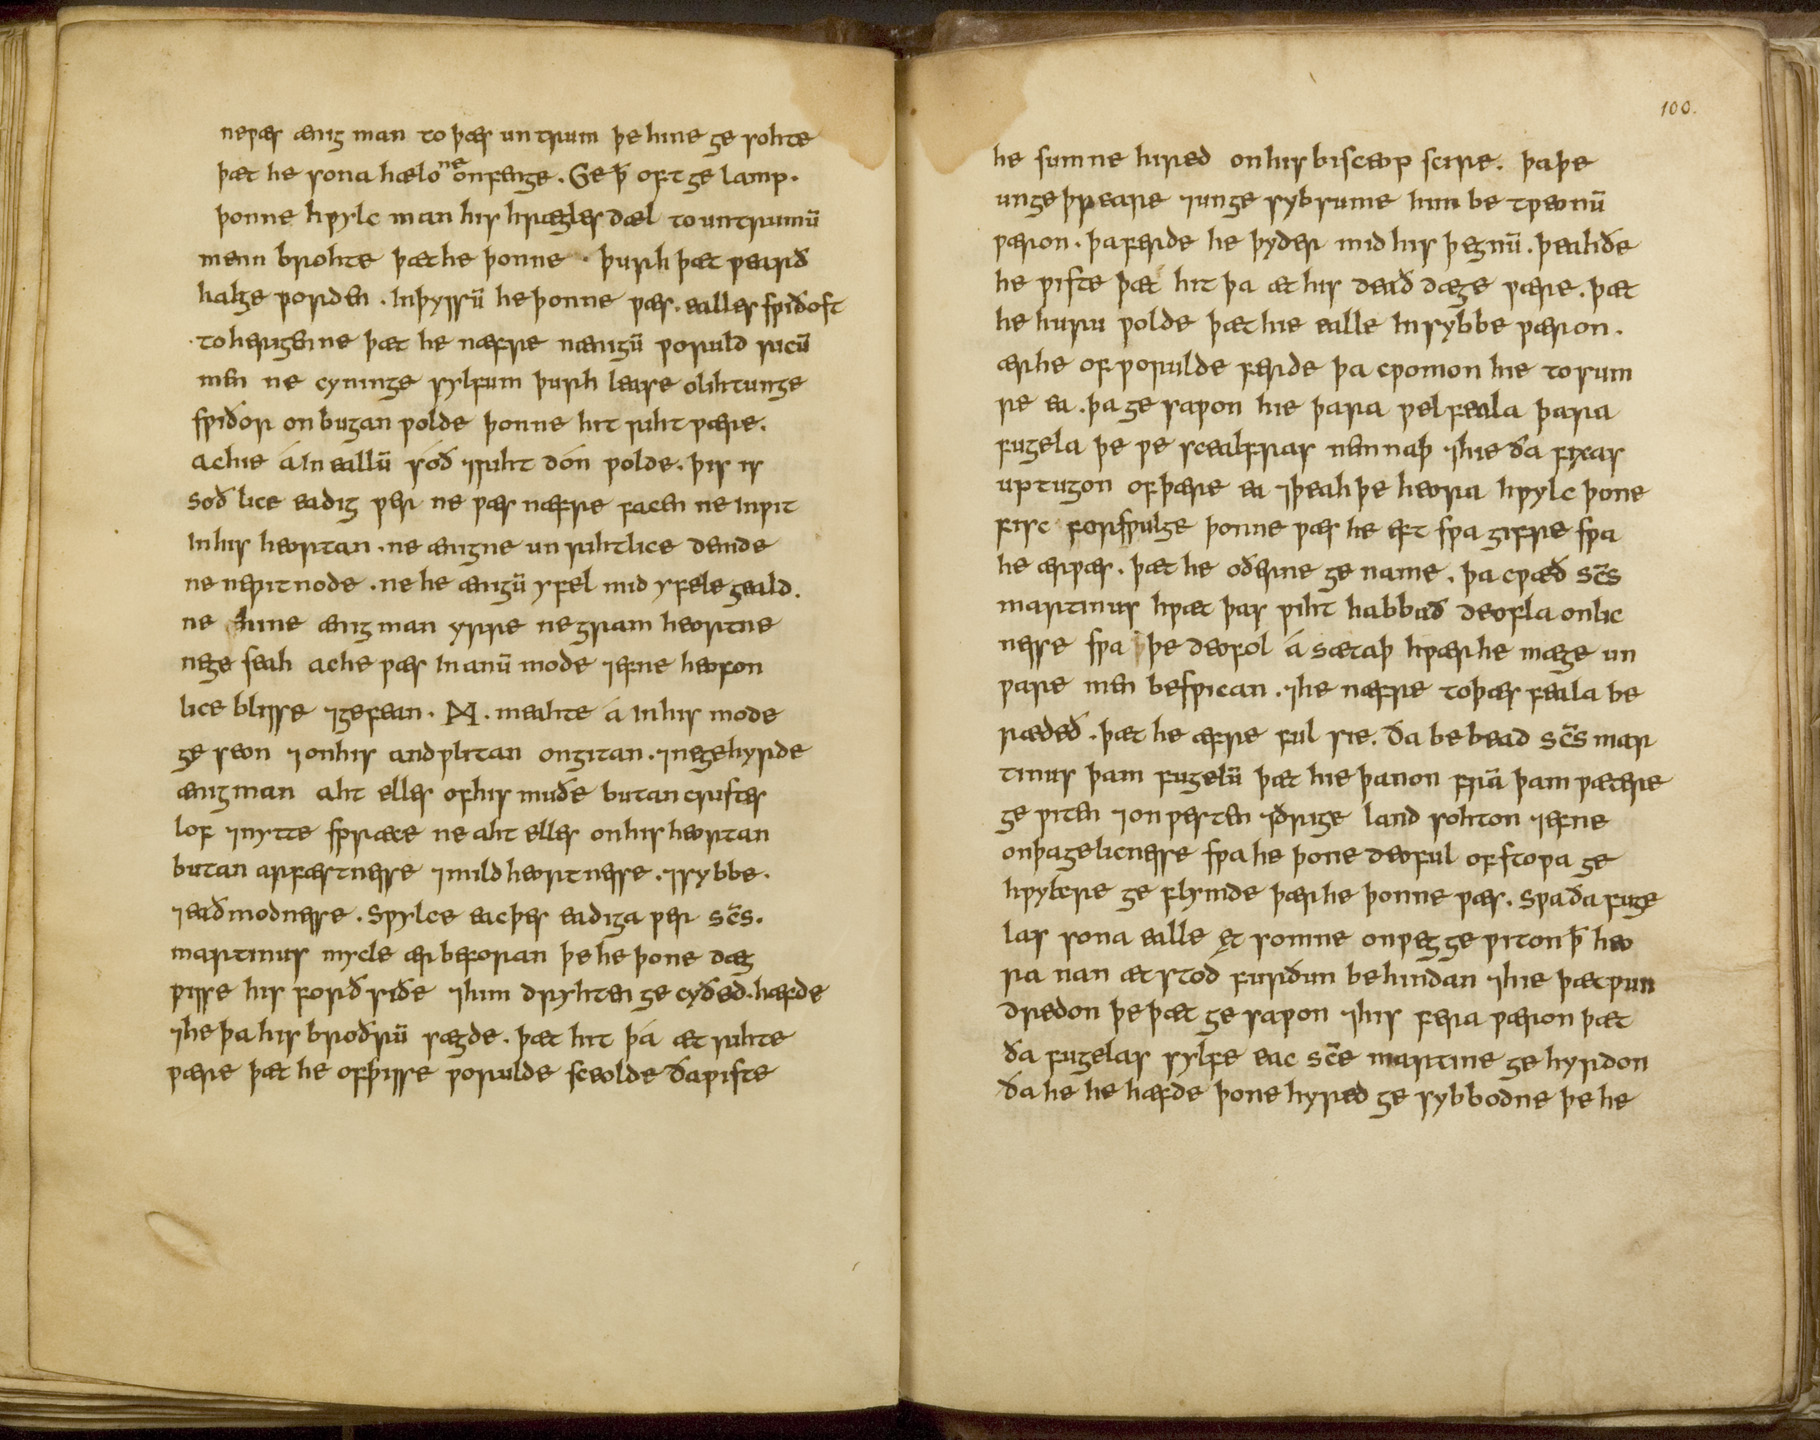 neƿæs ænig man to þæs untrum þe hine ge sohte
þæt he sona hælo ne onfenge. Ge ꝥ oft ge lamp.
þonne hƿylc man his hrægles dæl to untrumū
menn brohte þæt he þonne · þurh þæt ƿearð
halge ƿorden. In þyssū he þonne ƿæs. ealles sƿiðost
to herigenne þæt he næfre nænigū ƿoruld ricū
men ne cyninge sylfum þurh lease olihtunge
sƿiðor onbugan ƿolde þonne hit riht ƿære.
ac hie á In eallū sóð ⁊riht dón ƿolde. þis is
Soð lice eadig ƿer ne ƿæs næfre facen ne Inƿit
In his heortan. ne ænigne unrihtlice demde
ne neƿitnode. ne he ænigū yfel mid yfele geald.
ne hine ænig man yrre ne gram heortne
ne ge seah ac he ƿæs In anū mode ⁊efne heofon
lice blisse ⁊gefean. M. meahte á In his mode
ge seon ⁊on his andƿlitan ongitan. ⁊ne gehyrde
ænig man aht elles of his muðe butan cristes
lof ⁊nytte spræce ne aht elles on his heortan
butan arfæstnesse ⁊mildheortnesse. ⁊sybbe.
⁊eaðmodnesse. Sƿylce eac þes eadiga ƿer Scs̄.
martinus mycle ær beforan þe he þone dæg
ƿisse his forð siðe ⁊him drihten ge cyðed. hæfde
⁊he þa his broðrū sægde. þæt hit þá æt rihte
ƿære þæt he of þisse ƿorulde sceolde ða ƿiste
100.
he sumne hired on his bisceop scire. þa þe
unge þƿeare ⁊unge sybsume him be tƿeonū
ƿæron. þa ferde he þyder mid his þegnū. þeah ðe
he ƿiste þæt hit þa æt his deað dæge ƿære. þæt
he huru ƿolde þæt hie ealle In sybbe ƿæron.
ær he of ƿorulde ferde þa cƿomon hie to sum
re ea. þa ge saƿon hie þara ƿel feala þara
fugela þe ƿe scealfras nemnaþ ⁊hie ða fixas
uptugon of þære ea ⁊þeah þe heora hƿylc þone
fisc forsƿulge þonne ƿæs he eft sƿa gifre sƿa
he ær ƿæs. þæt he oðerne ge name. þa cƿæð Scs̄
martinus hƿæt þas ƿiht habbað deofla onlic
nesse sƿa þe deofol á sætaþ hƿær he mæge un
ƿare men besƿican. ⁊he næfre to þæs feala be
rædeð. þæt he æfre ful sie. Ða be bead Scs̄ mar
tinus þam fugelū þæt hie þanon frā þam ƿætere
ge ƿiten ⁊on ƿesten ⁊drige land sohton ⁊efne
on þa gelicnesse sƿa he þone deoful of stoƿa ge
hƿylcre ge flymde þær he þonne ƿæs. Sƿa ða fuge
las sona ealle ęt somne on ƿeg ge ƿiton ꝥ heo
ra nan æt stod furðun be hindan ⁊hie þæt ƿun
dredon þe þæt ge saƿon ⁊his fera ƿæron þæt
ða fugelas sylfe eac Scē martine ge hyrdon
ða he he hæfde þone hyred ge sybbodne þe he